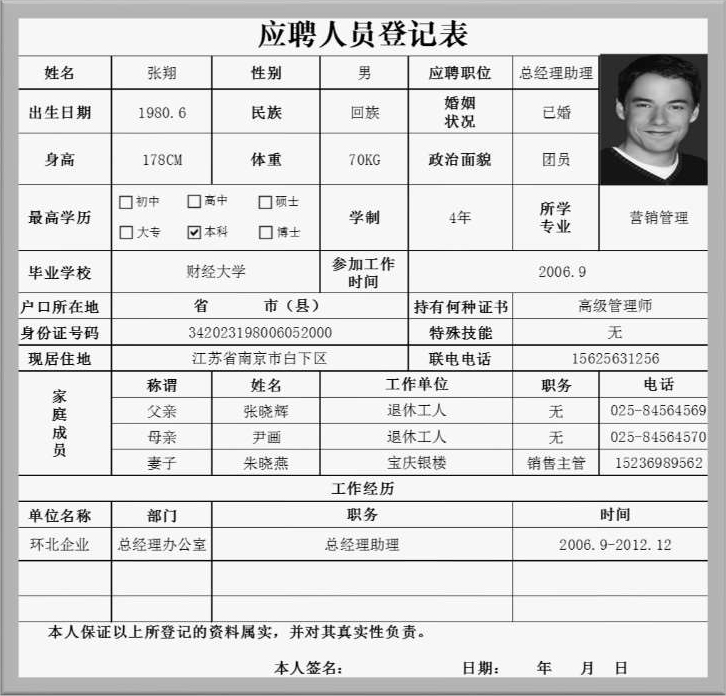 应聘人员登记表
姓名 张翔 性别 男 应聘职位 总经理助理
出生日期 1980.6 民族 回族 婚姻状况 已婚
身高 178CM 体重 70KG 政治面貌 团员
最高学历 初中 高中 硕士 大专 本科 博士 学制 4年 所学专业 营销管理
毕业学校 财经大学 参加工作时间 2006.9
户口所在地 省 市（县） 持有何种证书 高级管理师
身份证号码 342023198006052000 特殊技能 无
现居住地 江苏省南京市白下区 联电电话 15625631256
家庭成员 称谓 姓名 工作单位 职务 电话
父亲 张晓辉 退休工人 无 025-84564569
母亲 尹画 退休工人 无 025-84564570
妻子 朱晓燕 宝庆银楼 销售主管 15236989562
工作经历
单位名称 部门 职务 时间
环北企业 总经理办公室 总经理助理 2006.9-2012.12
本人保证以上所登记的资料属实，并对其真实性负责。
本人签名： 日期： 年 月 日